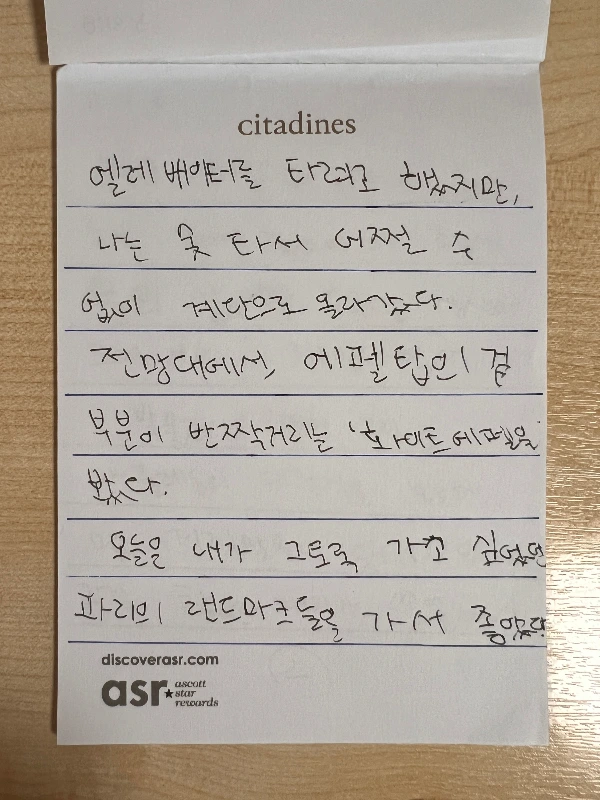 citadines
엘레베이터를 타려고 했지만,
나는 못 타서 어쩔 수
없이 계단으로 올라갔다.
전망대에서, 에펠탑의 겉
부분이 반짝거리는 '화이트에펠'을
봤다.
오늘은 내가 그토록 가고 싶었던
파리의 랜드마크들을 가서 좋았다
discoverasr.com
asr ascott
star
rewards